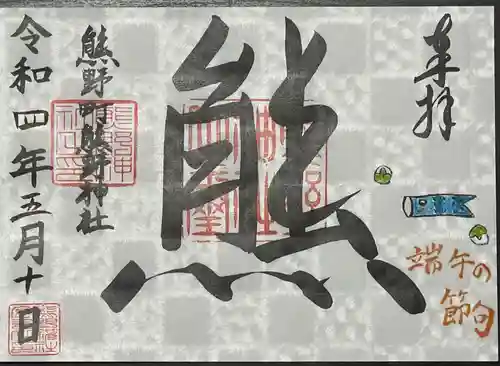 奉拝
端午の
節句
熊
熊野町熊野神社
令和四年五月十日